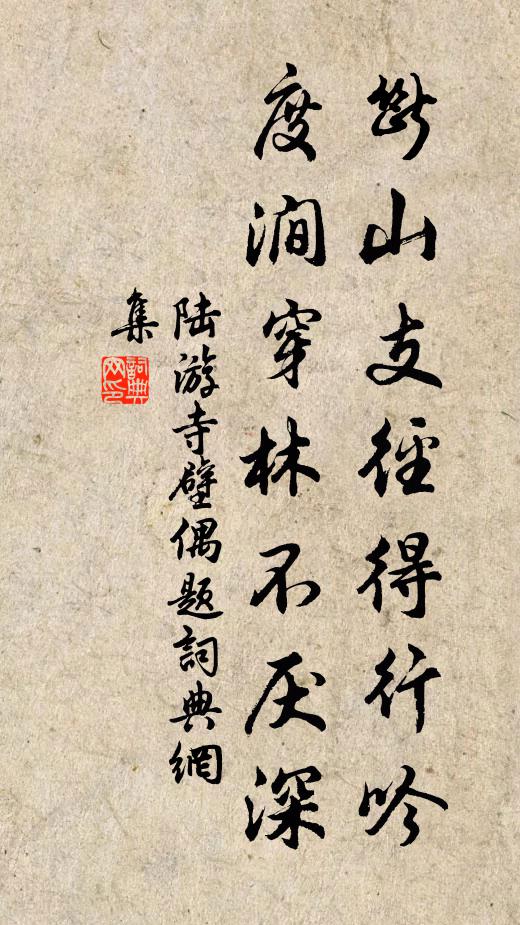 断山支径得行吟
度涧穿林不厌深
陆游寺壁偶题詞典網
集
詞典
网印